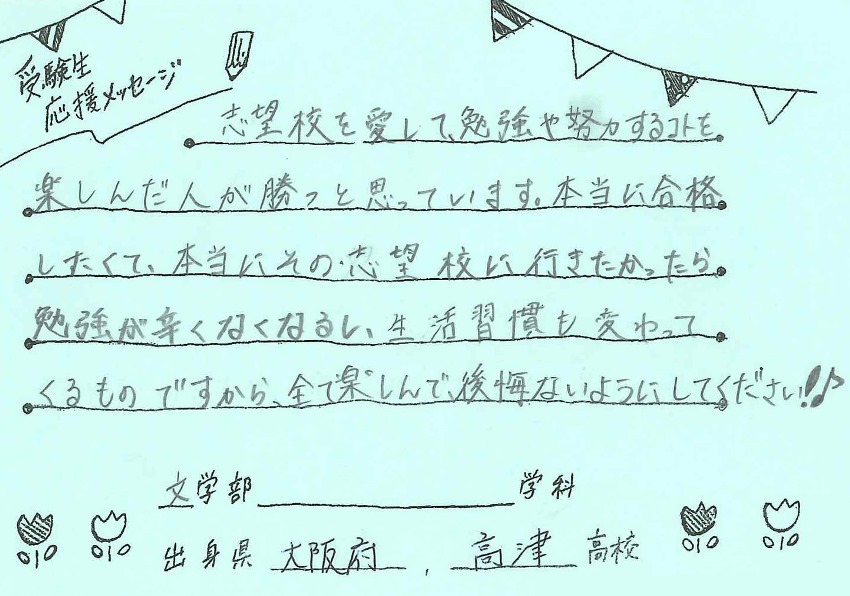 受験生
応援メッセージ
志望校を愛して、勉強や努力するコトを
楽しんだ人が勝つと思っています。本当に合格
したくて、本当にその志望校に行きたかったら
勉強が辛くなくなるし、生活習慣も変わって
くるものですから、全て楽しんで、後悔ないようにしてください!!♪
文学部 学科
出身県 大阪府, 高津 高校